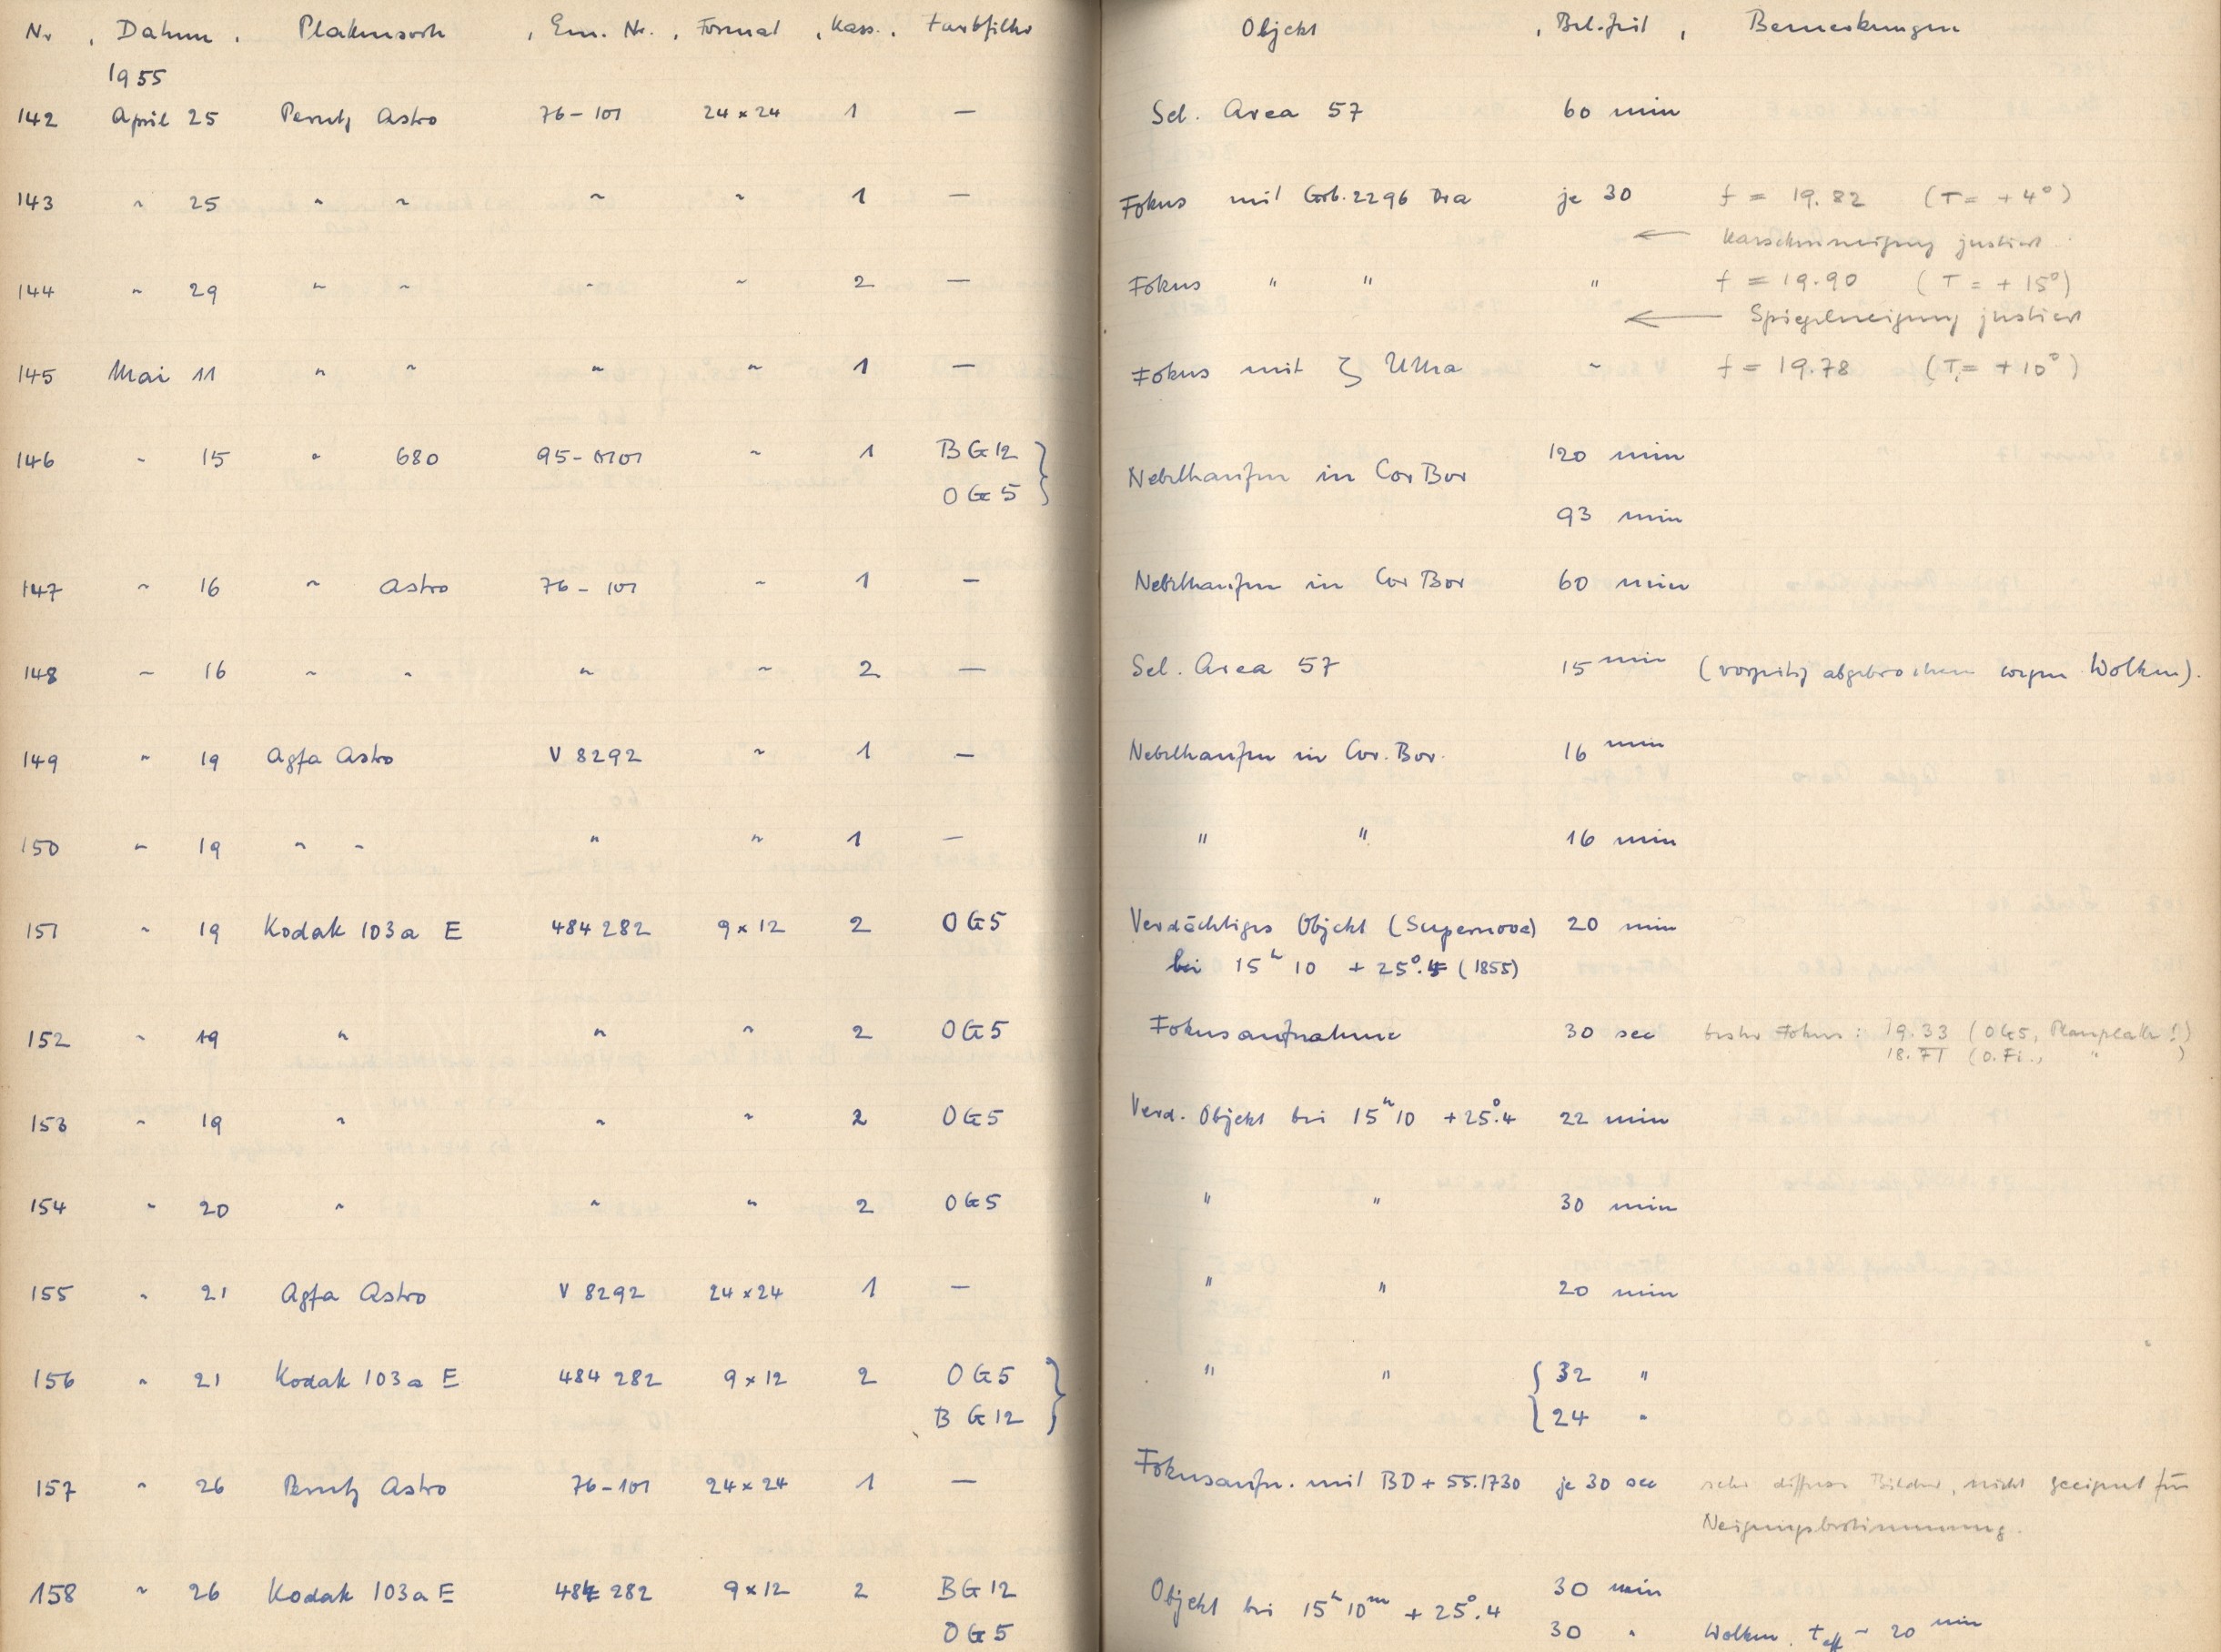 Nr , Datum , Plattensorte , Em. Nr. , Format , Kass. , Farbfilter Objekt , Bel.zeit , Bemerkungen
1955
142 April 25 Perutz Astro 76-101 24×24 1 — Sel. Area 57 60 min
143 " 25 " " " " 1 — Fokus mit Grb. 2296 Dra je 30 f = 19.82 (T = +4°)
← Kassettenneigung justiert
144 " 29 " " " " 2 — Fokus " " " f = 19.90 (T = +15°)
← Spiegelneigung justiert
145 Mai 11 " " " " 1 — Fokus mit ζ UMa " f = 19.78 (T = +10°)
146 " 15 " 680 95-0101 " 1 BG12 } Nebelhaufen in CorBor 120 min
OG5 93 min
147 " 16 " Astro 76-101 " 1 — Nebelhaufen in Cor Bor 60 min
148 " 16 " " " " 2 — Sel. Area 57 15 min (vorzeitig abgebrochen wegen Wolken).
149 " 19 Agfa Astro V 8292 " 1 — Nebelhaufen in Cor. Bor. 16 min
150 " 19 " " " " 1 — " " 16 min
151 " 19 Kodak 103a E 484282 9×12 2 OG5 Verdächtiges Objekt (Supernova) 20 min
bei 15h 10 +25°.4 (1855)
152 " 19 " " " 2 OG5 Fokusaufnahme 30 sec bester Fokus: 19.33 (OG5, Planplatte!)
18.71 (O.Fi., " )
153 " 19 " " " 2 OG5 Verd. Objekt bei 15h10 +25°.4 22 min
154 " 20 " " " 2 OG5 " " 30 min
155 " 21 Agfa Astro V 8292 24×24 1 — " " 20 min
156 " 21 Kodak 103a E 484 282 9×12 2 OG5 } " " { 32 "
BG12 24 "
157 " 26 Perutz Astro 76-101 24×24 1 — Fokusaufn. mit BD+55.1730 je 30 sec sehr diffuse Bilder, nicht geeignet für
Neigungsbestimmung.
158 " 26 Kodak 103a E 484 282 9×12 2 BG12 Objekt bei 15h10m +25°.4 30 min
OG5 30 " Wolken. teff ~ 20 min